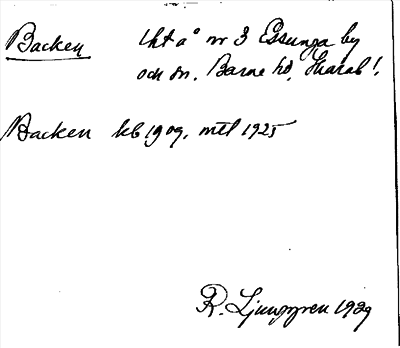 Backen lht å nr 3 Essunga by
och sn, Barne hd, Skarab l.
Backen kb 1909, mtl 1925
R. Ljunggren 1929